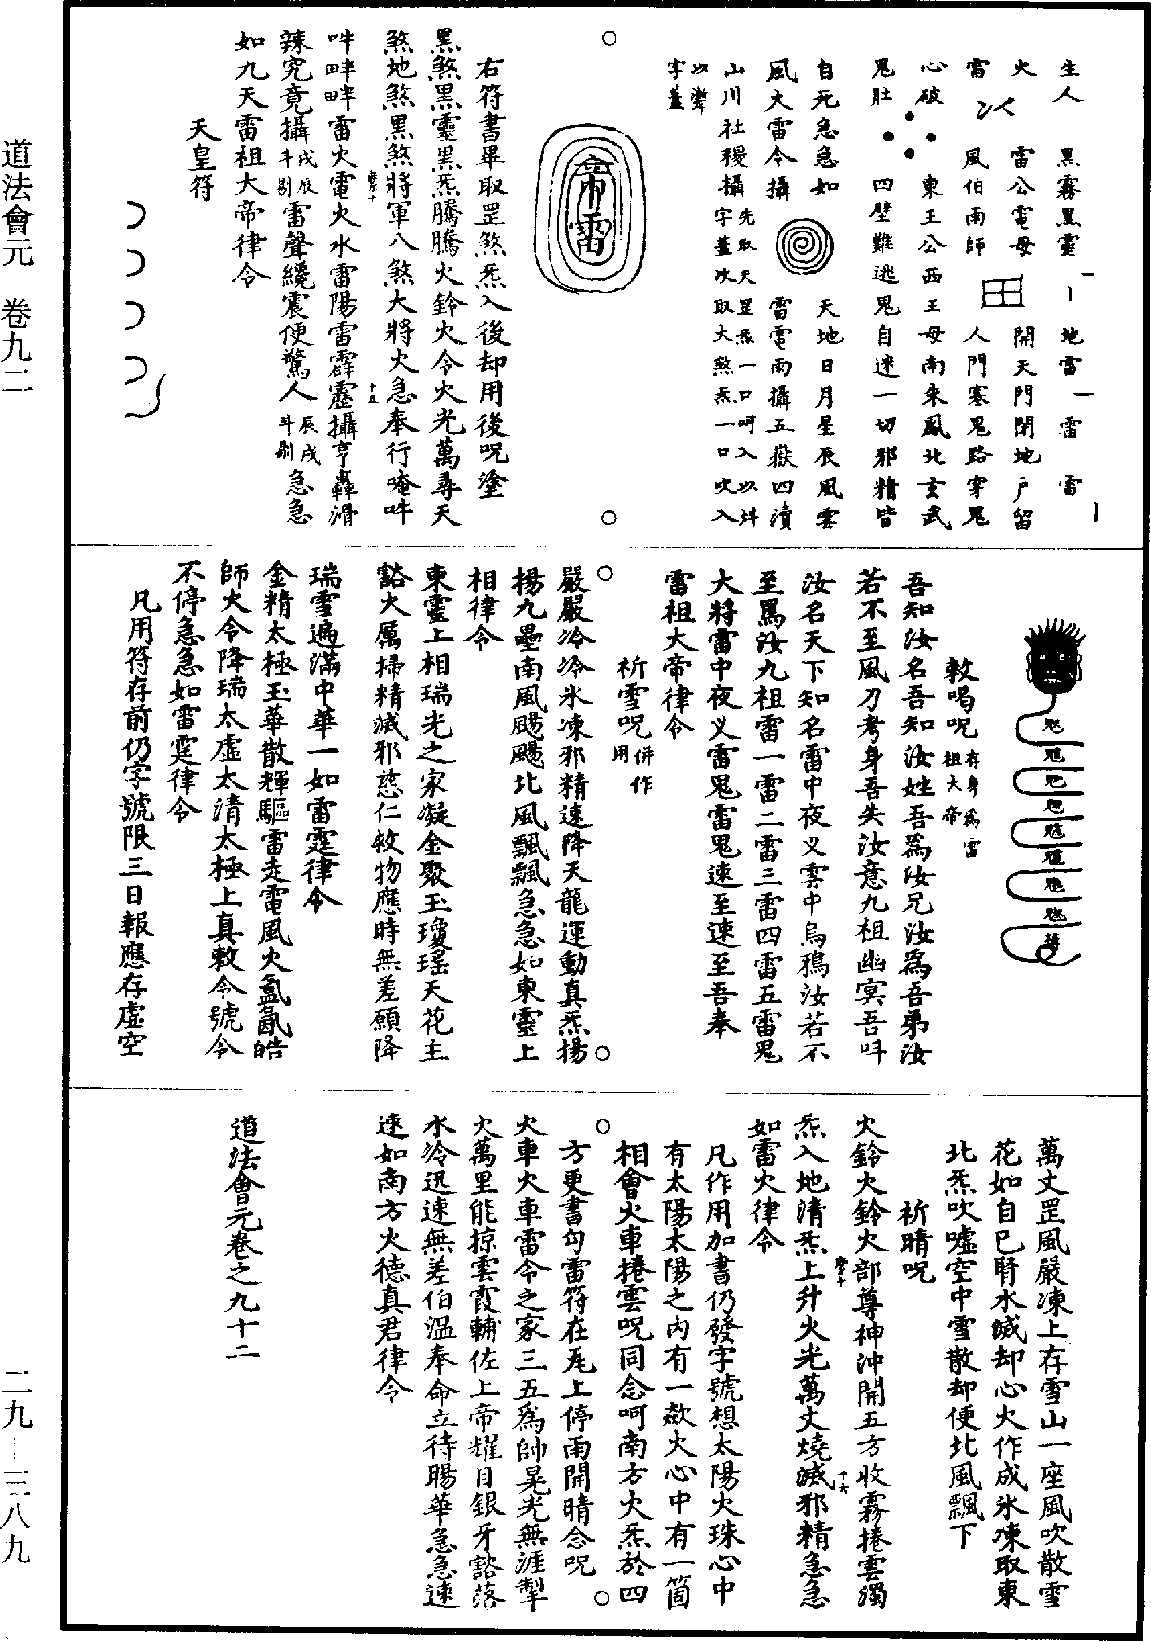 生人　黑霧黑靈　地雷　雷　雷
火　雷公電母　開天門閉地戶留
雷　風伯雨師　人門塞鬼路穿鬼
心破　東王公西王母南朱鳳北玄武
鬼肚　四壁難逃鬼自迷一切邪精皆
自死急急如　天地日月星辰風雲
風火雷令攝　雷電雨攝五嶽四瀆
山川社稷攝先取天罡炁一口呵入以
字蓋次取大煞炁一口吹入
以
字蓋
帝雷
右符書畢取罡煞炁入後却用後呪塗
黑煞黑靈黑炁騰騰火鈴火令火光萬尋天
煞地煞黑煞將軍八煞大將火急奉行唵吽
吽畔畔雷火電火水雷陽雷霹靂攝亨轟滑
辣究竟攝戌辰斗剔雷聲纔震便驚人辰戌斗剔急急
如九天雷祖大帝律令
天皇符
敕喝呪存身為雷祖大帝
吾知汝名吾知汝姓吾為汝兄汝為吾弟汝
若不至風刀考身吾失汝意九祖幽冥吾呌
汝名天下知名雷中夜叉雲中烏鴉汝若不
至罵汝九祖雷一雷二雷三雷四雷五雷鬼
大將雷中夜叉雷鬼雷鬼速至速至吾奉
雷祖大帝律令
祈雪呪併作用
嚴嚴冷冷氷凍邪精速降天龍運動真炁揚
揚九壘南風颺颺北風飄飄急急如東靈上
相律令
東靈上相瑞光之家凝金聚玉瓊瑤天花主
豁火厲掃精滅邪慈仁敕物應時無差願降
瑞雪遍滿中華一如雷霆律令
金精太極玉華散輝驅雷走電風火氤氳皓
師火令降瑞太虛太清太極上真敕令號令
不停急急如雷霆律令
凡用符存前仍字號限三日報應存虛空
萬丈罡風嚴凍上存雪山一座風吹散雪
花如自己腎水滅却心火作成氷凍取東
北炁吹噓空中雪散却便北風飄下
祈晴呪
火鈴火鈴火部尊神沖開五方收霧捲雲濁
炁入地清炁上升火光萬丈燒滅邪精急急
如雷火律令
凡作用加書仍發字號想太陽火珠心中
有太陽太陽之內有一歘火心中有一箇
相會火車捲雲呪同念呵南方火炁於四
方更書勾雷符在瓦上停雨開晴念呪
火車火車雷令之家三五為帥晃光無涯掣
火萬里能掠雲霞輔佐上帝耀目銀牙豁落
水冷迅速無差伯溫奉命立待暘華急急速
速如南方火德真君律令
道法會元卷之九十二
道法會元　卷九二
二九—三八九